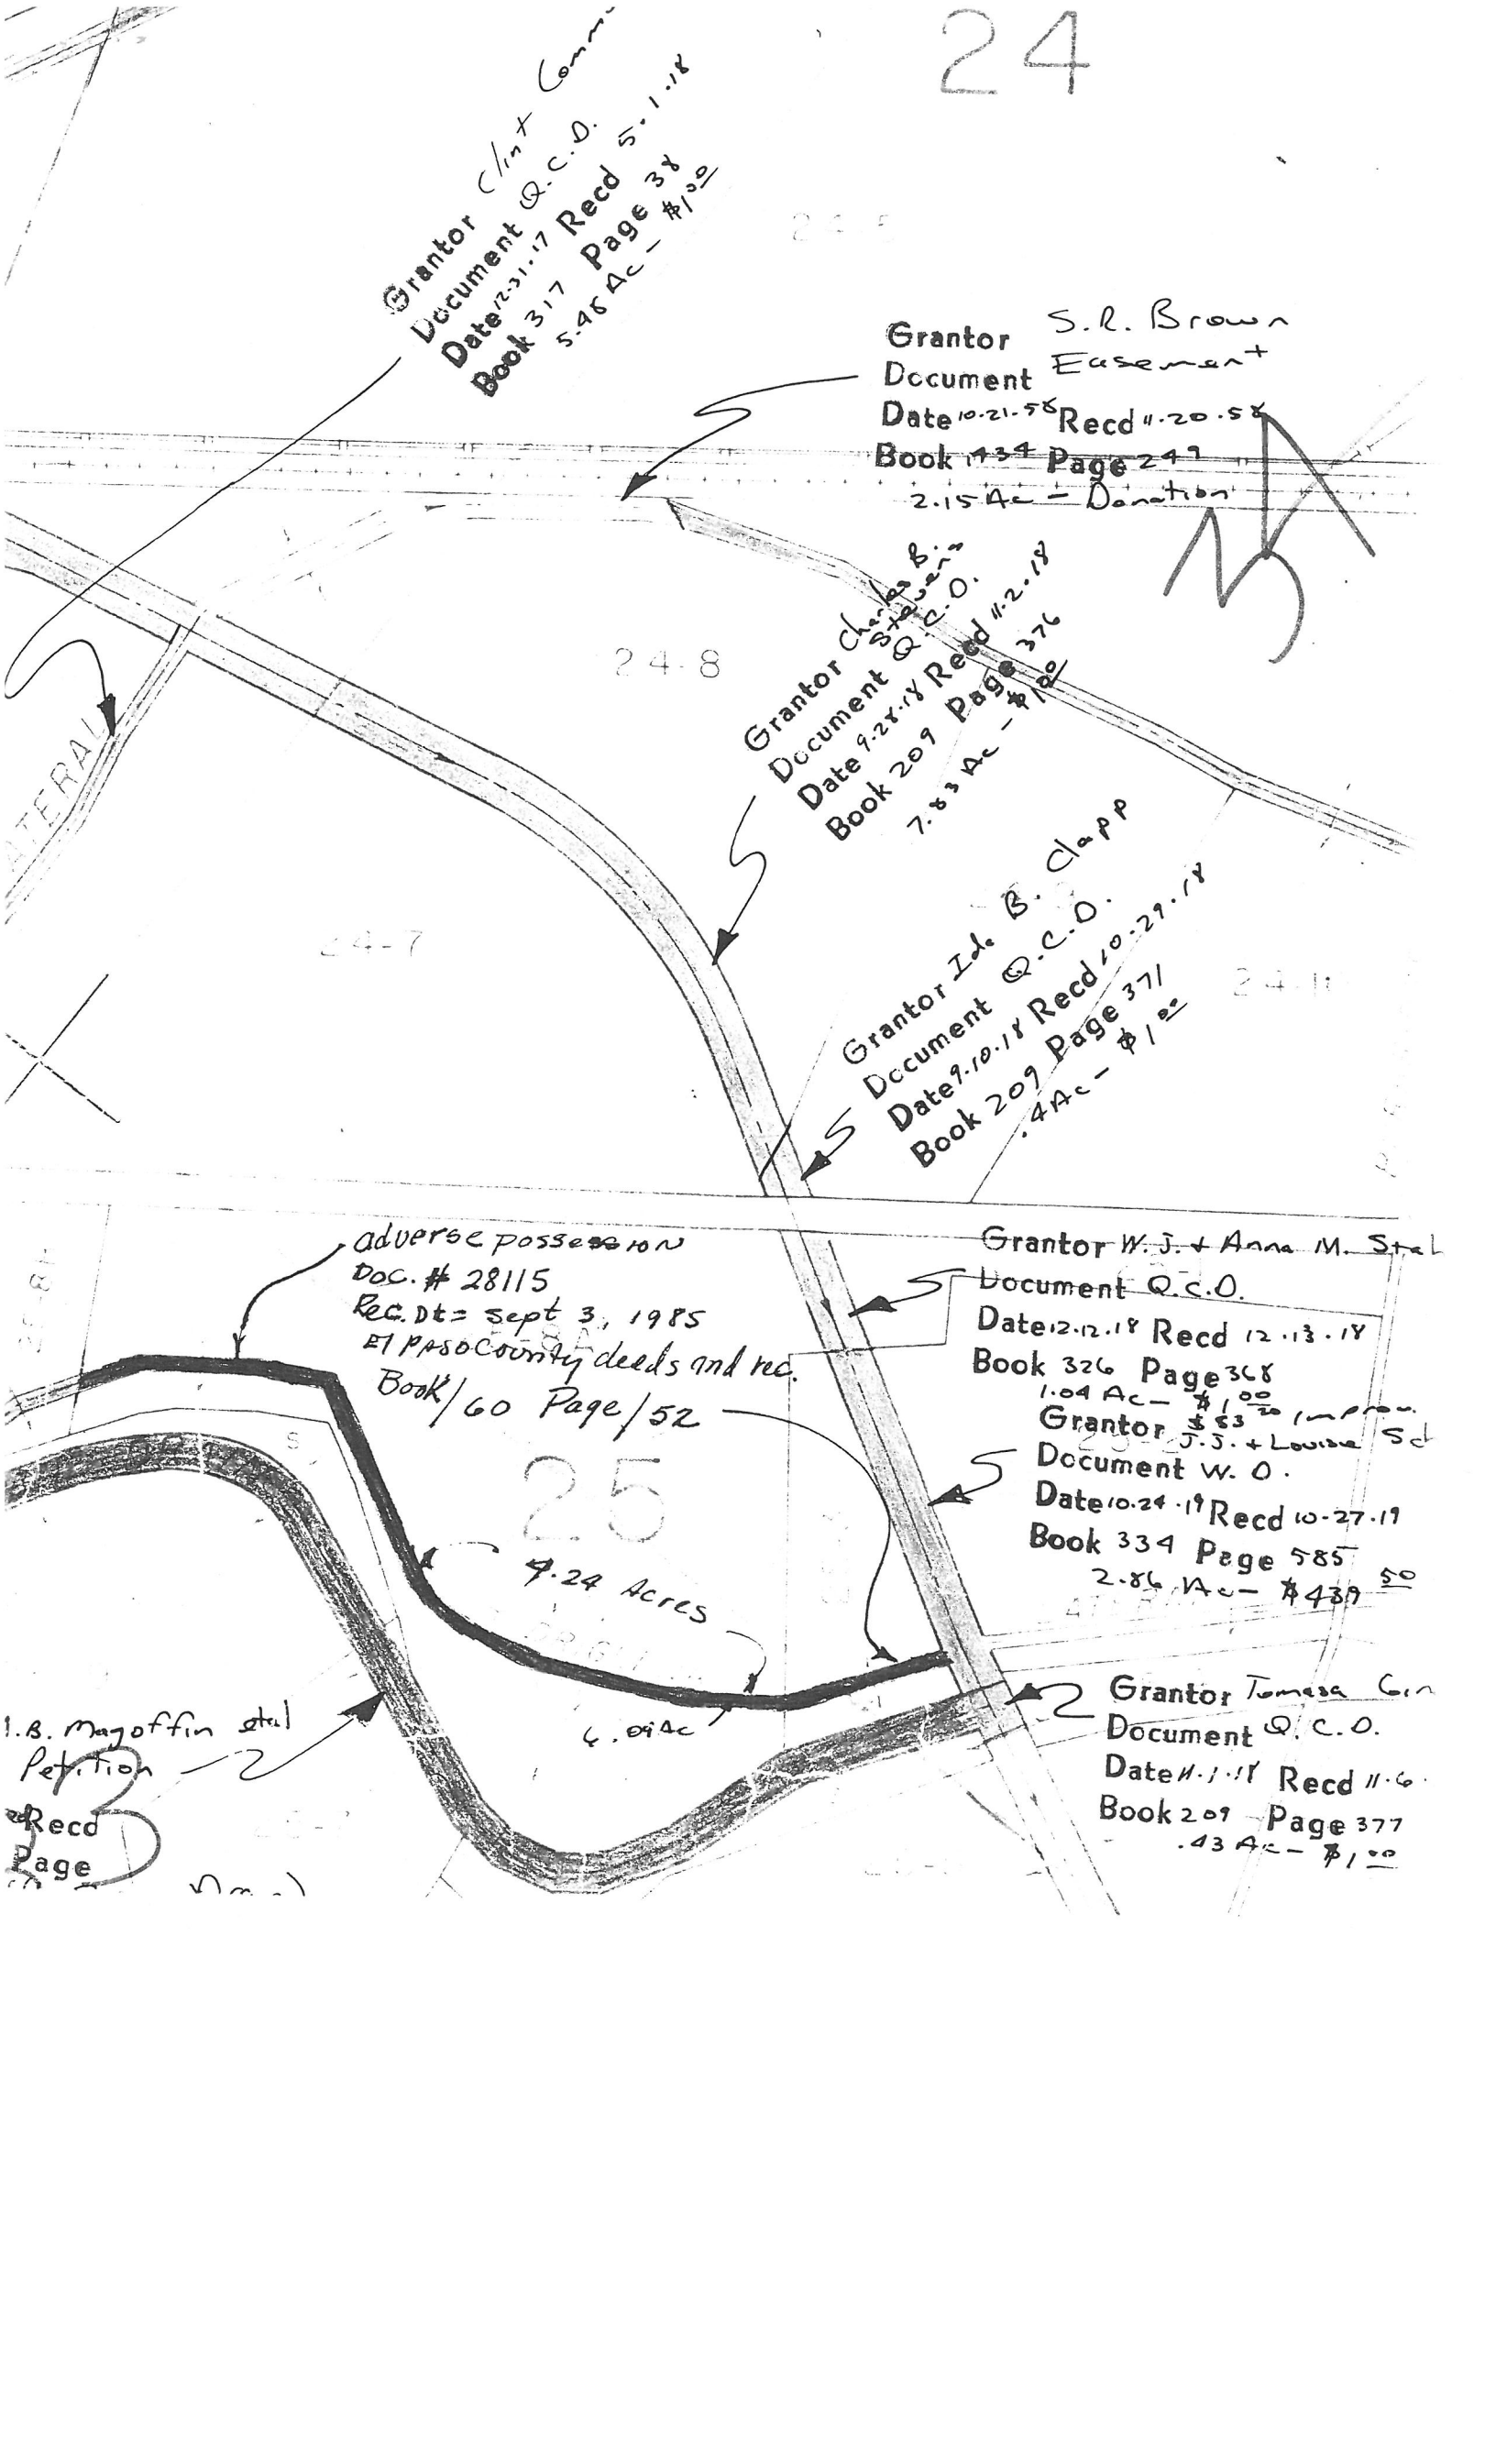 24
Grantor Clint Comm
Document Q.C.D.
Date 12-31-17 Recd 5.1.18
Book 317 Page 38
Ac - $1.00
Grantor S.R. Brown
Document Easement
Date 10-21-58 Recd 11.20.58
Book 1434 Page 249
2.15 Ac - Donation
24-8
Grantor Charles B.
Stevens
Document Q.C.D.
Date 9.28.18 Recd 11.2.18
Book 209 Page 376
7.83 Ac - $1.00
ATERAL
24-7
Grantor Ida B. Clapp
Document Q.C.D.
Date 9.10.18 Recd 10-29.18
Book 209 Page 371
.4 Ac - $1.00
adverse possession
Doc. # 28115
Rec. Dt = Sept 3, 1985
El Paso County deeds and rec.
Book/60 Page/52
Grantor W. J. + Anna M. Stal
Document Q.C.D.
Date 12.12.18 Recd 12.13.18
Book 326 Page 368
1.04 Ac - $1.00
Grantor J.J. + Louise
Document W. D.
Date 10.24.19 Recd 10-27.19
Book 334 Page 585
2.86 Ac - $439 50
25
4.24 Acres
Grantor Tomasa
Document Q.C.D.
Date 11.1.18 Recd 11.6.
Book 209 Page 377
.43 Ac - $1.00
Magoffin etal
Petition
Recd
Page